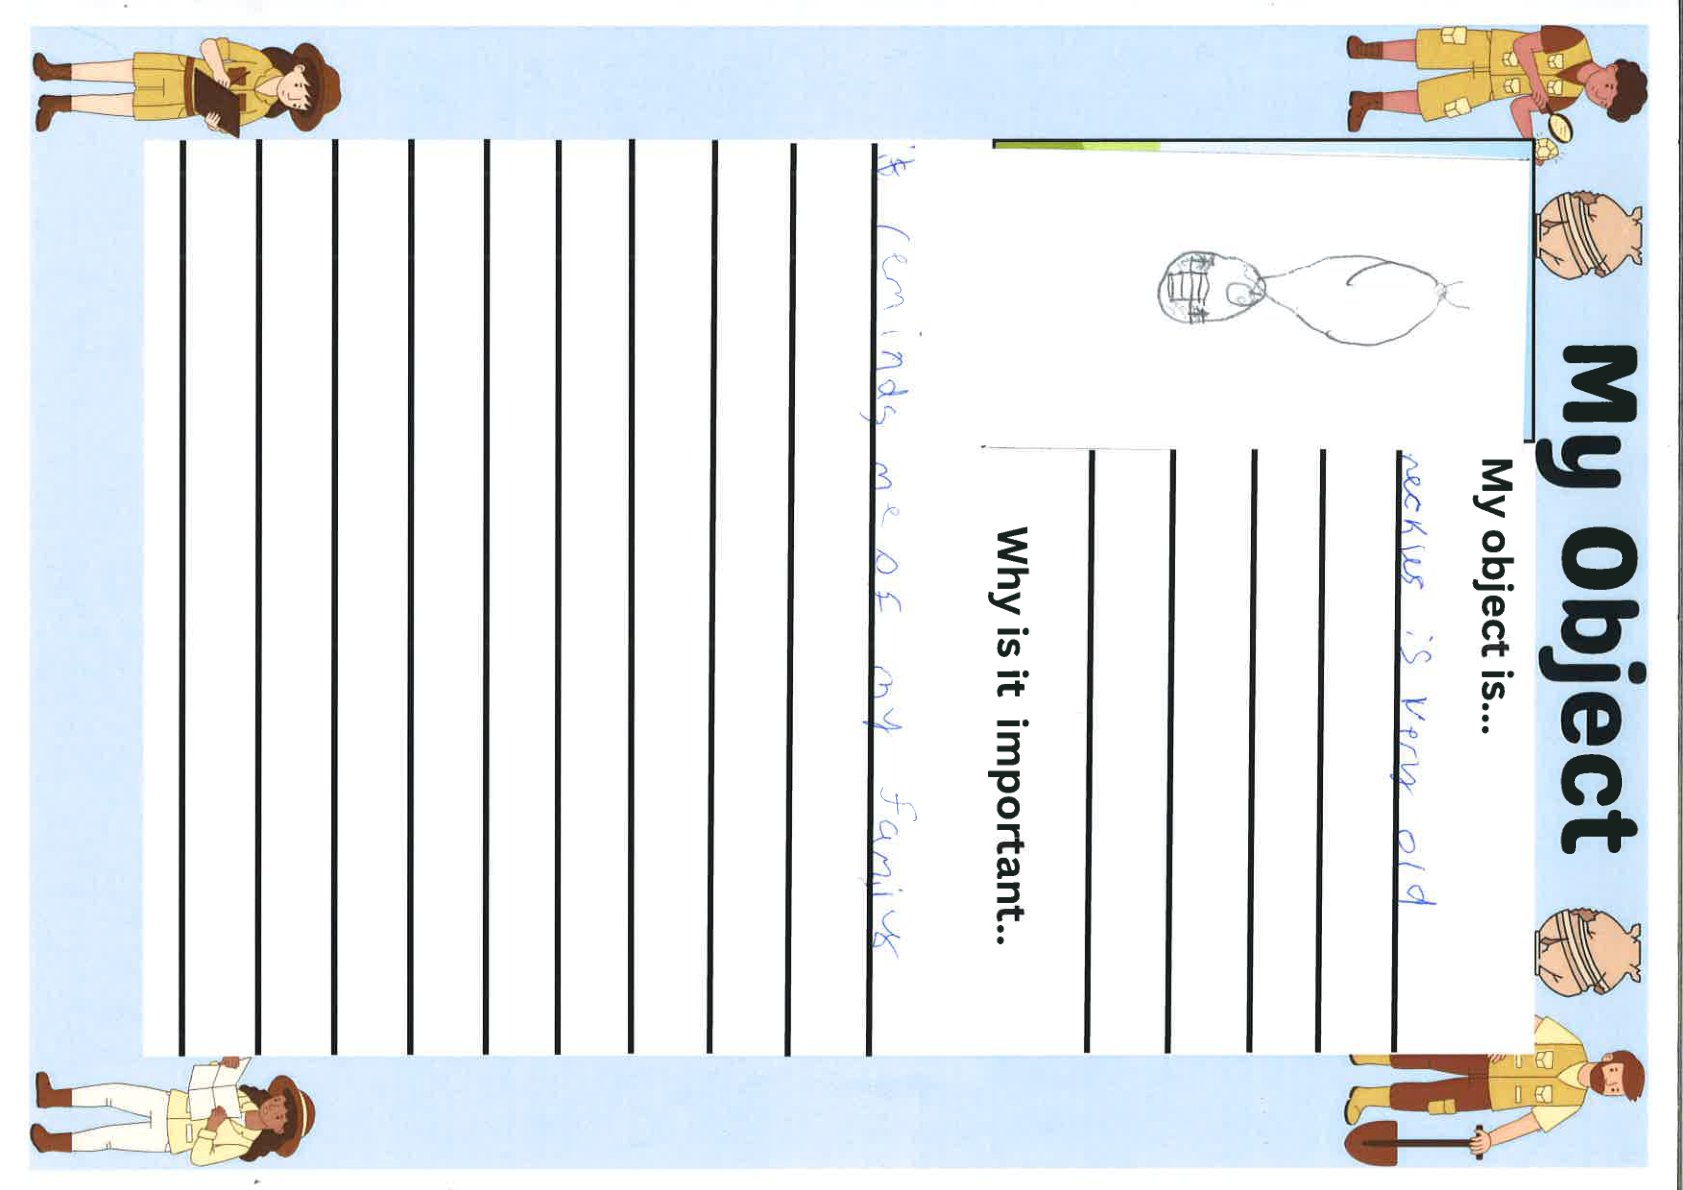 My Object
My object is...
neckles is very old
Why is it important..
it reminds me of my family